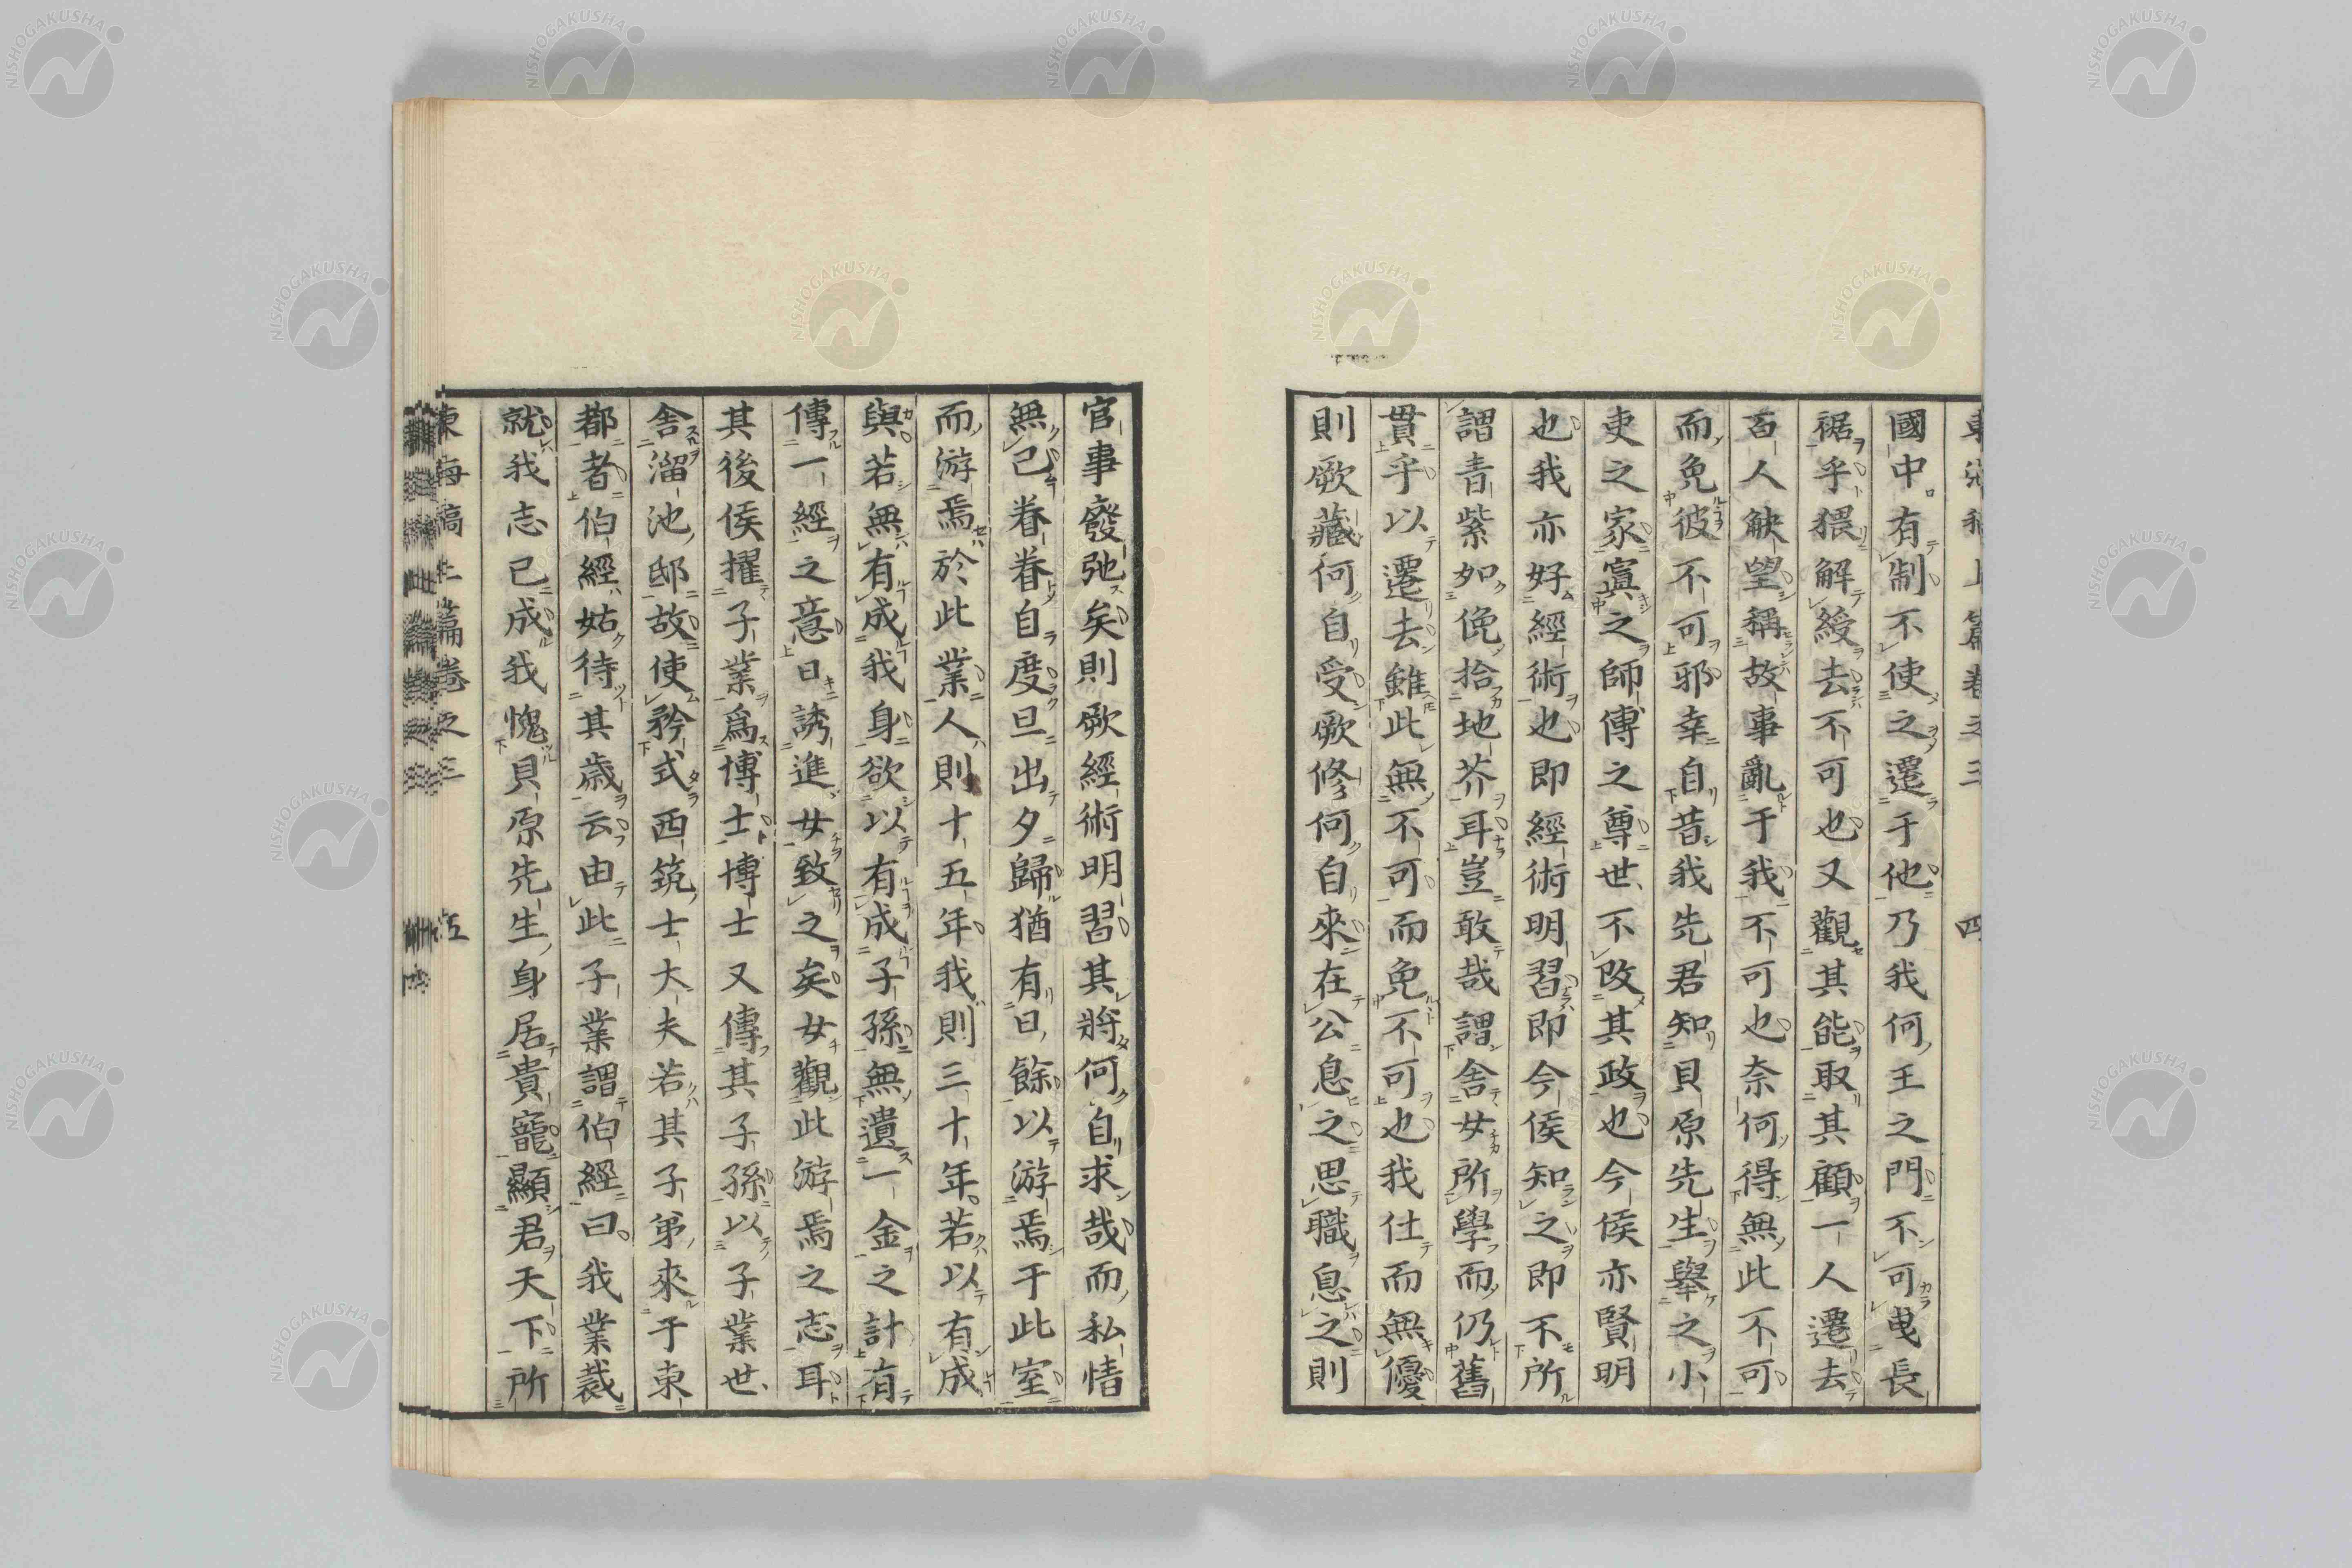 國中有制不使之遷于他乃我何王之門不可曳長
裾乎猥解綬去不可也又觀其能取其顧一人遷去
百人觖望稱故事亂于我不可也奈何得無此不可
而免彼不可邪幸自昔我先君知貝原先生舉之小
吏之家寘之師傅之尊世不改其政也今侯亦賢明
也我亦好經術也即經術明習即今侯知之即不所
謂青紫如俛拾地芥耳豈敢哉謂舍女所學而仍舊
貫乎以遷去雖此無不可而免不可也我仕而無優
則厥藏何自受厥修何自來在公息之思職息之則
官事廢弛矣則厥經術明習其將何自求哉而私情
無已眷眷自度旦出夕歸猶有日餘以游焉于此室
而游焉於此業人則十五年我則三十年若以有成
與若無有成我身欲以有成子孫無遺一金之計有
傳一經之意曰誘進女致之矣女觀此游焉之志耳
其後侯擢子業爲博士博士又傳其子孫以子業世
舍溜池邸故使矜式西筑士大夫若其子弟來于東
都者伯經姑待其歲云由此子業謂伯經曰我業裁
就我志已成我愧貝原先生身居貴寵顯君天下所
東海稿上篇卷之三